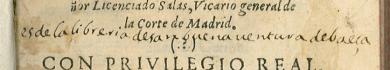 ñor Licenciado Salas, Vicario general de
la Corte de Madrid.
es de la libreria de san buenaventura de baeça
(.?.)
CON PRIVILEGIO REAL